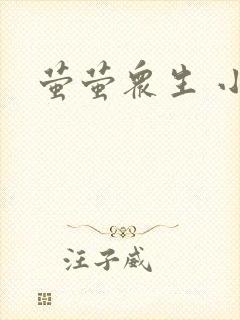 萤萤众生 小
汪子崴